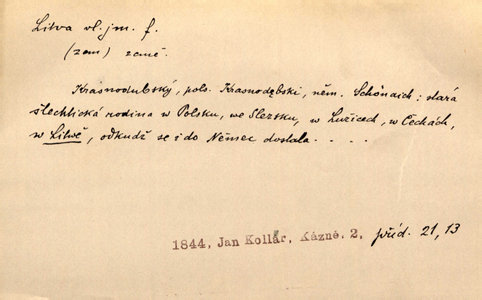 Litva vl. jm. f.
(zem) země.
Krasnodubský, pols. Krasnodębski, něm. Schönaich; stará
šlechtická rodina w Polsku, we Slezsku, w Lužicech, w Čechách,
w Litwě, odkudž se i do Němec dostala . . . .
1844, Jan Kollár, Kázně. 2, příd. 21, 13